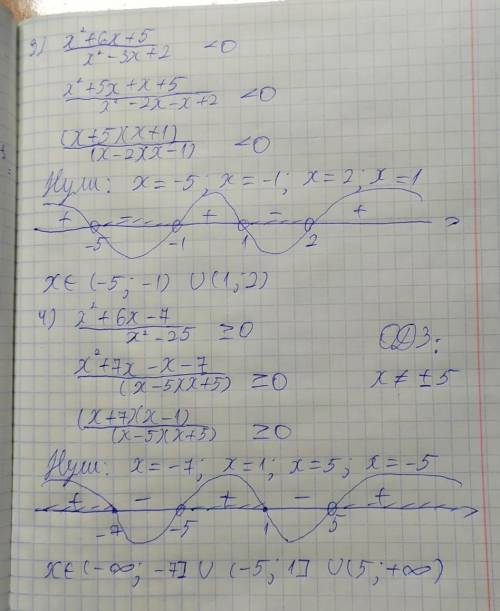 3) (x²+6x+5)/(x²-3x+2) <0
(x²+5x+x+5)/(x²-2x-x+2) <0
((x+5)(x+1))/((x-2)(x-1)) <0
Нули: x=-5; x=-1; x=2; x=1
+ - + - +
-5 -1 1 2
x∈(-5;-1) ∪(1;2)
4) (x²+6x-7)/(x²-25) ≥0 ОДЗ:
(x²+7x-x-7)/((x-5)(x+5)) ≥0 x≠±5
((x+7)(x-1))/((x-5)(x+5)) ≥0
Нули: x=-7; x=1; x=5; x=-5
+ - + - +
-7 -5 1 5
x∈(-∞;-7]∪(-5;1]∪(5;+∞)